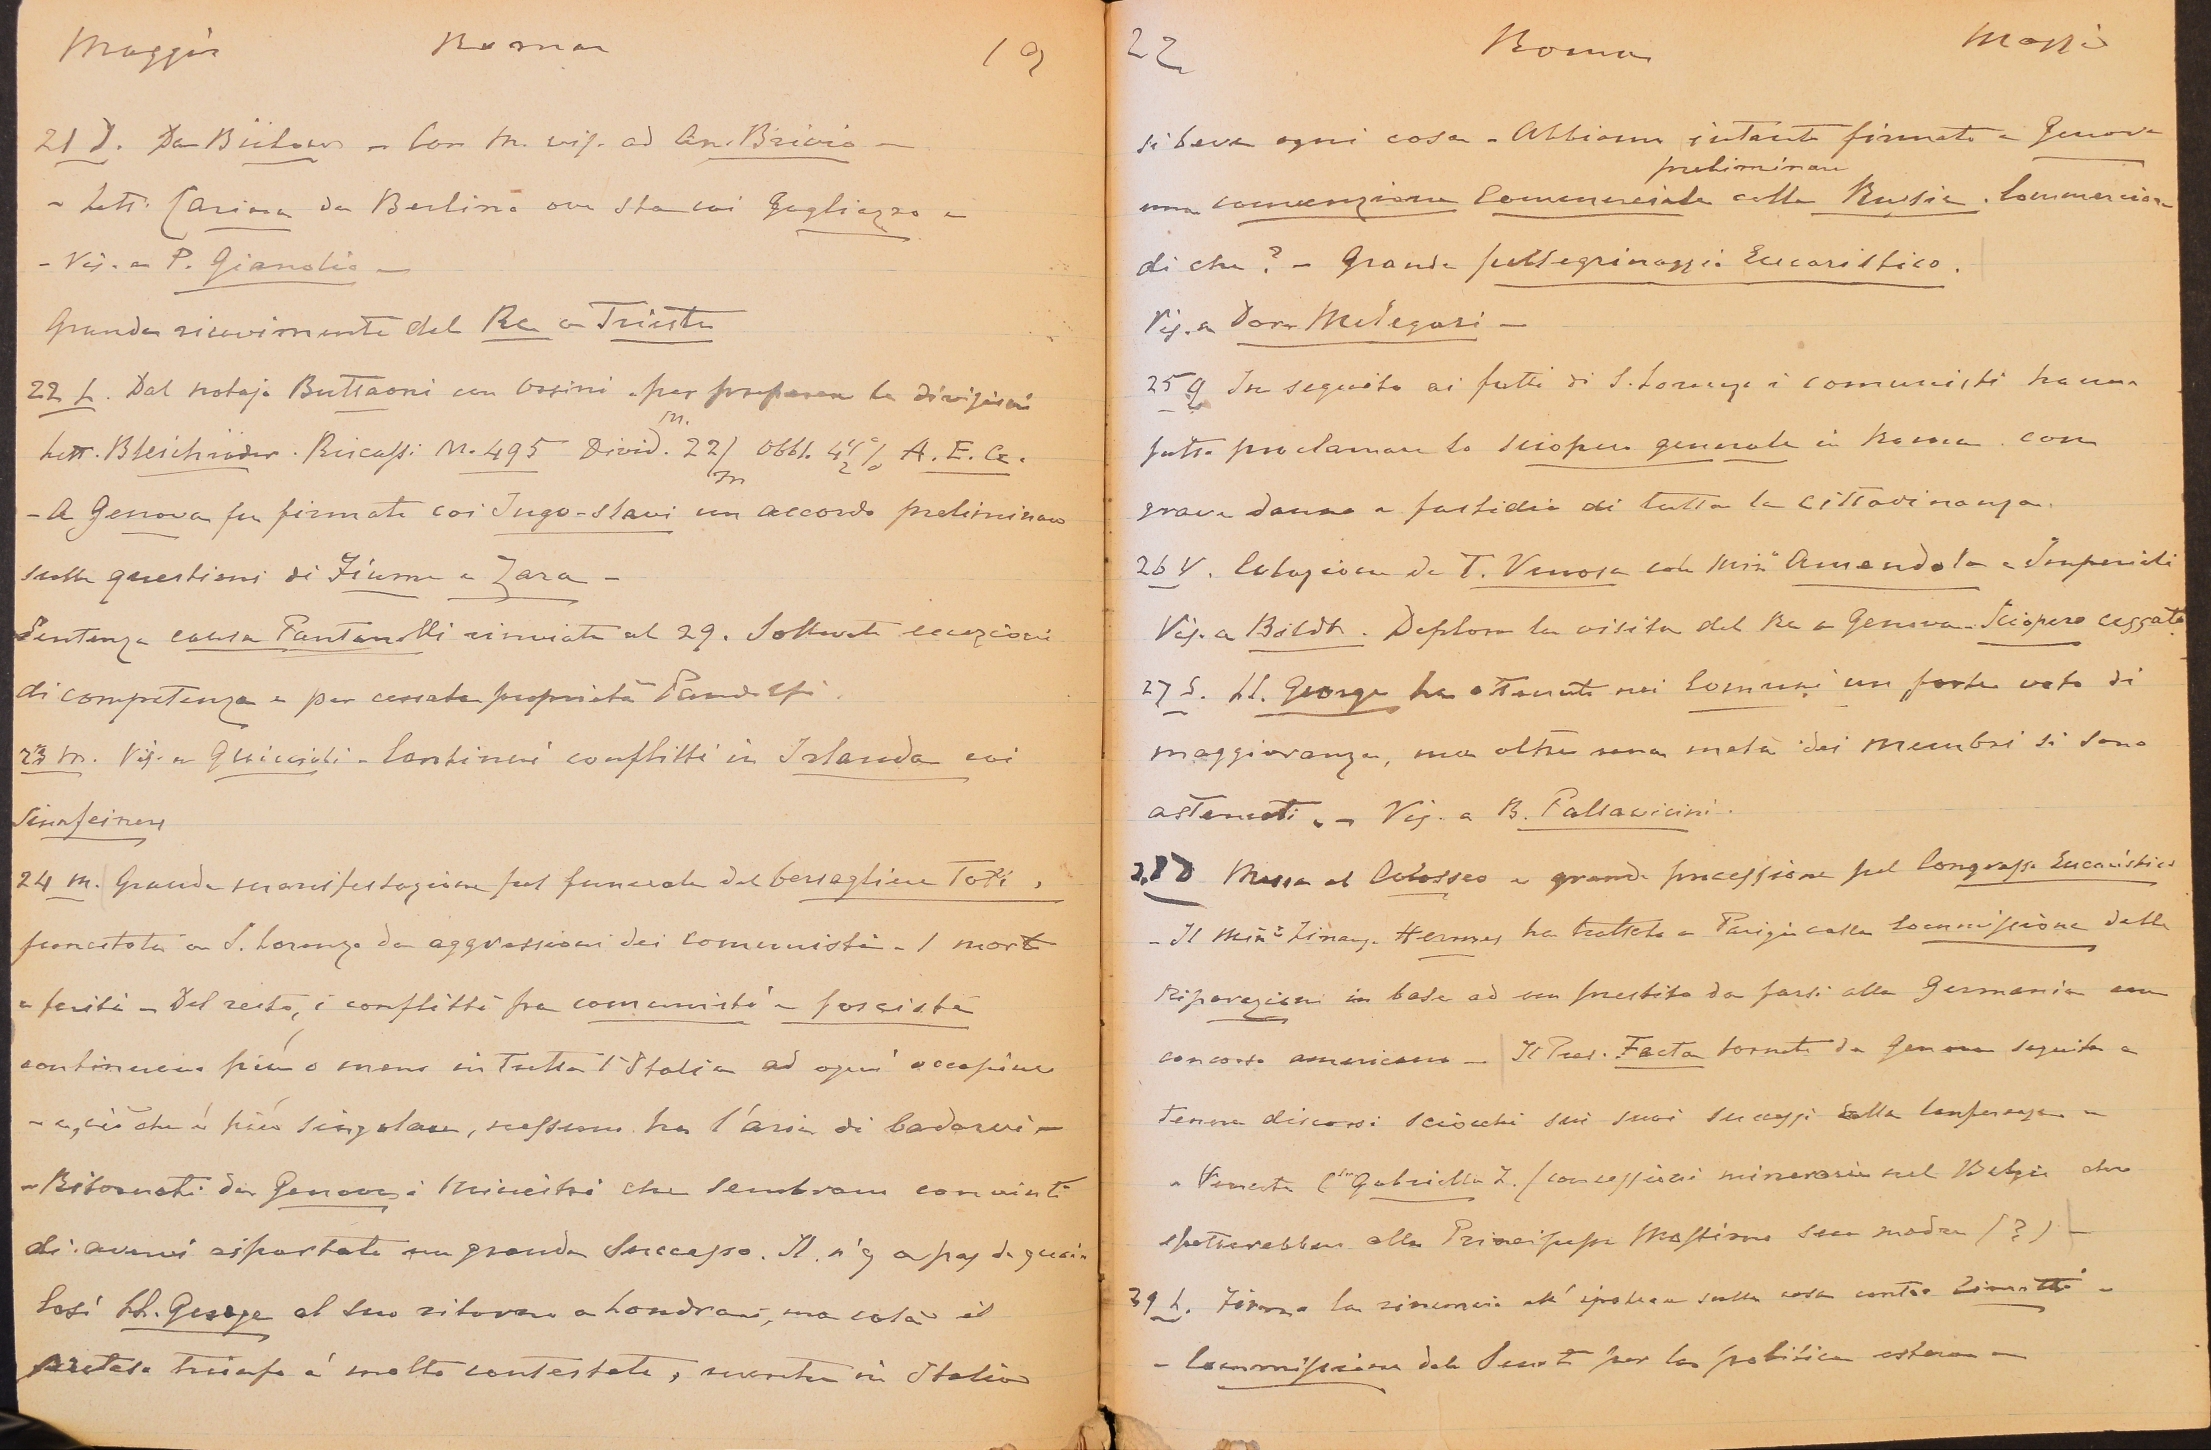 Maggio Roma 19
21 D. Da Bülow - Con M. vis. ad An. Brivio -
- Lett. Carina da Berlino ove sta coi Gagliazzo -
- Vis. a P. Gianotti -
Grande ricevimento del Re a Trieste
22 L. Dal notajo Buttaoni con Orsini per preparare la divisione
Lett. Bleichröder. Riscossi M. 495 Divid. 22/m m. Obbl. 4 1/2 % A. E. G.
- A Genova fu firmato coi Jugo-slavi un accordo preliminare
sulle questioni di Fiume e Zara -
Sentenza causa Pantanelli rinviata al 29. Sollevate eccezioni
di competenza e per cessata proprietà Pandolfi.
23 M. Vis. a Guiccioli - Continui conflitti in Irlanda coi
Sinnfeiners
24 M. Grande manifestazione pel funerale del bersagliere Toti,
funestata a S. Lorenzo da aggressioni dei comunisti - 1 morto
e feriti - Del resto, i conflitti fra comunisti e fascisti
continuano più o meno in tutta l'Italia ad ogni occasione
- e, ciò che è più singolare, nessuno ha l'aria di badarvi -
- Ritornati da Genova i Ministri che sembrano convinti
di avervi riportato un grande successo. Il n'y a pas de quoi.
Così Ll. George al suo ritorno a Londra, ma colà il
preteso trionfo è molto contestato, mentre in Italia
22 Roma Maggio
si beve ogni cosa - Abbiamo intanto firmato a Genova
una convenzione commerciale preliminare colla Russia. Commerciare
di che? - Grande pellegrinaggio Eucaristico.
Vis. a Dora Melegari -
25 G In seguito ai fatti di S. Lorenzo i comunisti hanno
fatto proclamare lo sciopero generale in Roma con
grave danno e fastidio di tutta la cittadinanza.
26 V. Colazione da T. Venosa col Min.o Amendola e Imperiali
Vis. a Bildt. Deplora la visita del Re a Genova - Sciopero cessato.
27 S. Ll. George ha ottenuto nei Comuni un forte voto di
maggioranza, ma oltre una metà dei membri si sono
astenuti. - Vis. a B. Pallavicini.
28 D Messa al Colosseo e grande processione pel Congresso Eucaristico
- Il Min.o Finanze Hermes ha trattato a Parigi colla Commissione delle
Riparazioni in base ad un prestito da farsi alla Germania con
concorso americano - Il Pres. Facta tornato da Genova seguita a
tenere discorsi sciocchi sui suoi successi alla Conferenza -
- Venuta C.ssa Gabriella Z. / concessioni minerarie nel Belgio che
spetterebbero alla Principessa Massimo sua madre (?) -
29 L. Firma la rinuncia all'ipoteca sulla casa contro -
- Commissione del Senato per la politica estera -